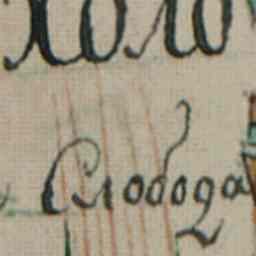 холо
Слобода